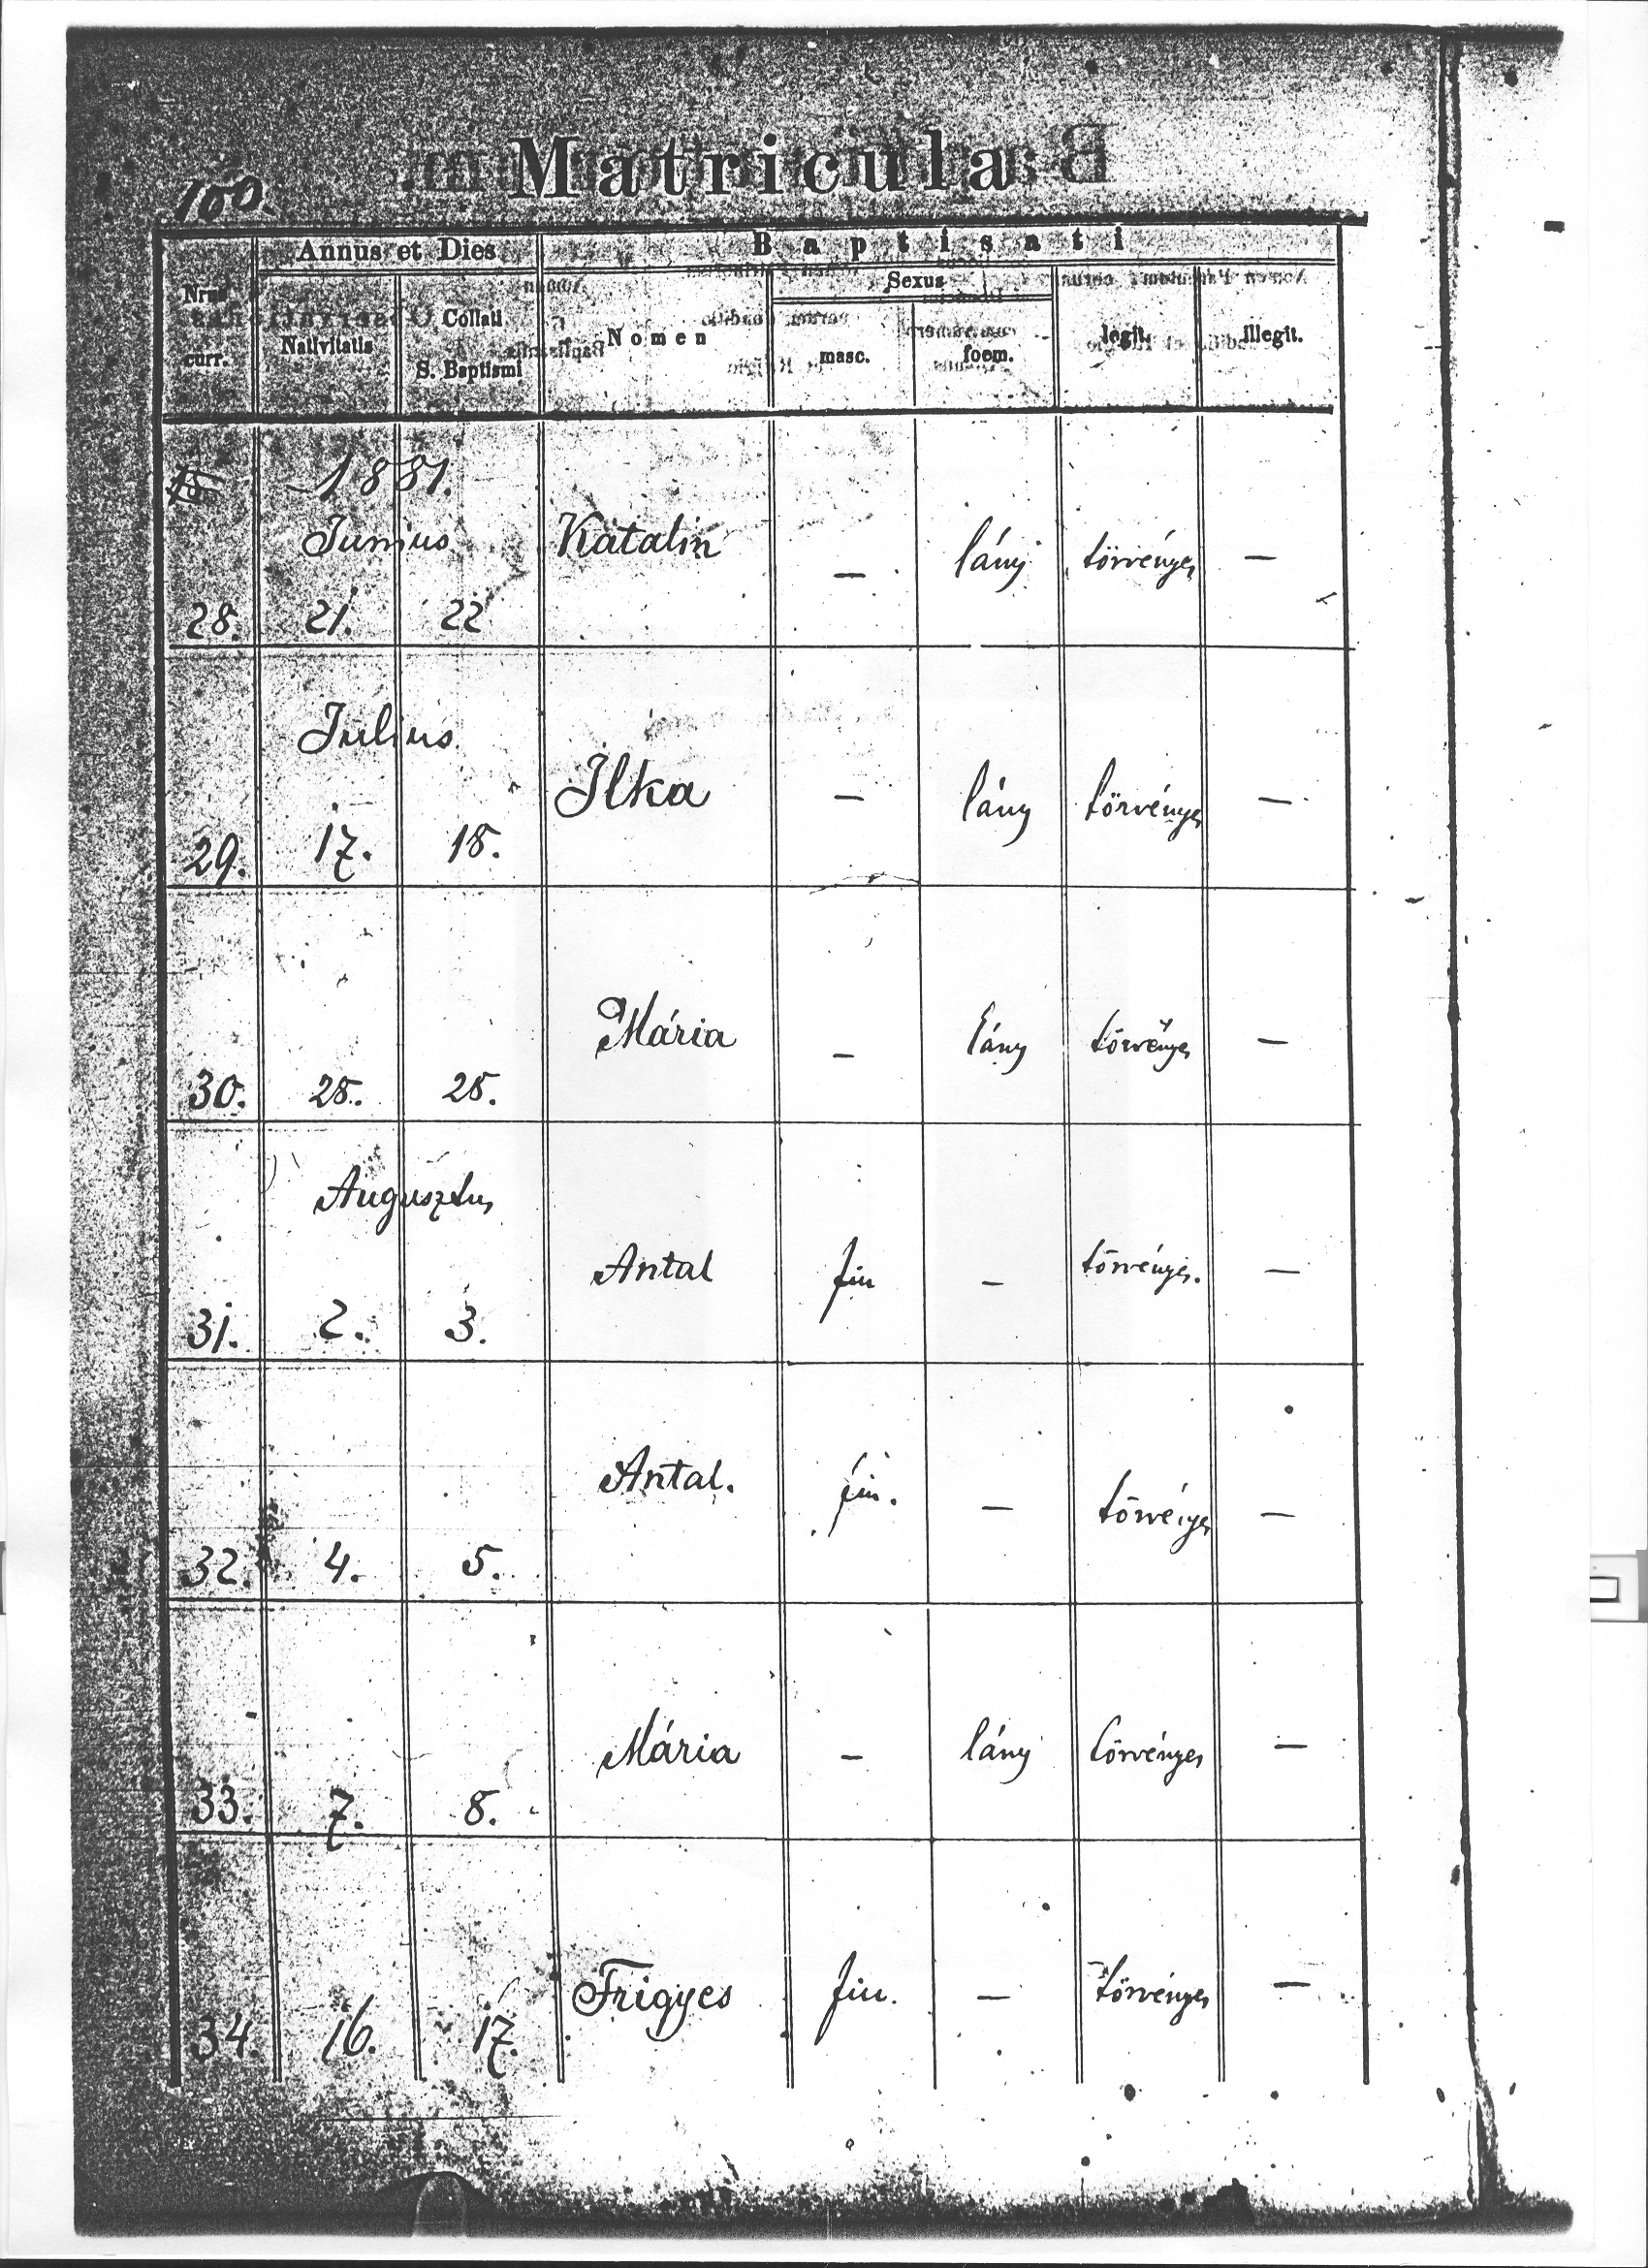 160.
Matricula
Annus et Dies
Baptisati
Nrus
curr.
Nativitatis
Collati
S. Baptismi
Nomen
Sexus
masc.
foem.
legit.
illegit.
1881.
Junius
28. 21. 22 Katalin — lány törvényes —
Julius
29. 17. 18. Ilka — lány törvényes —
30. 25. 25. Mária — lány törvényes —
Augusztus
31. 2. 3. Antal fiu — törvényes. —
32. 4. 5. Antal. fiu. — törvényes —
33. 7. 8. Mária — lány törvényes —
34. 16. 17. Frigyes fiu. — törvényes —